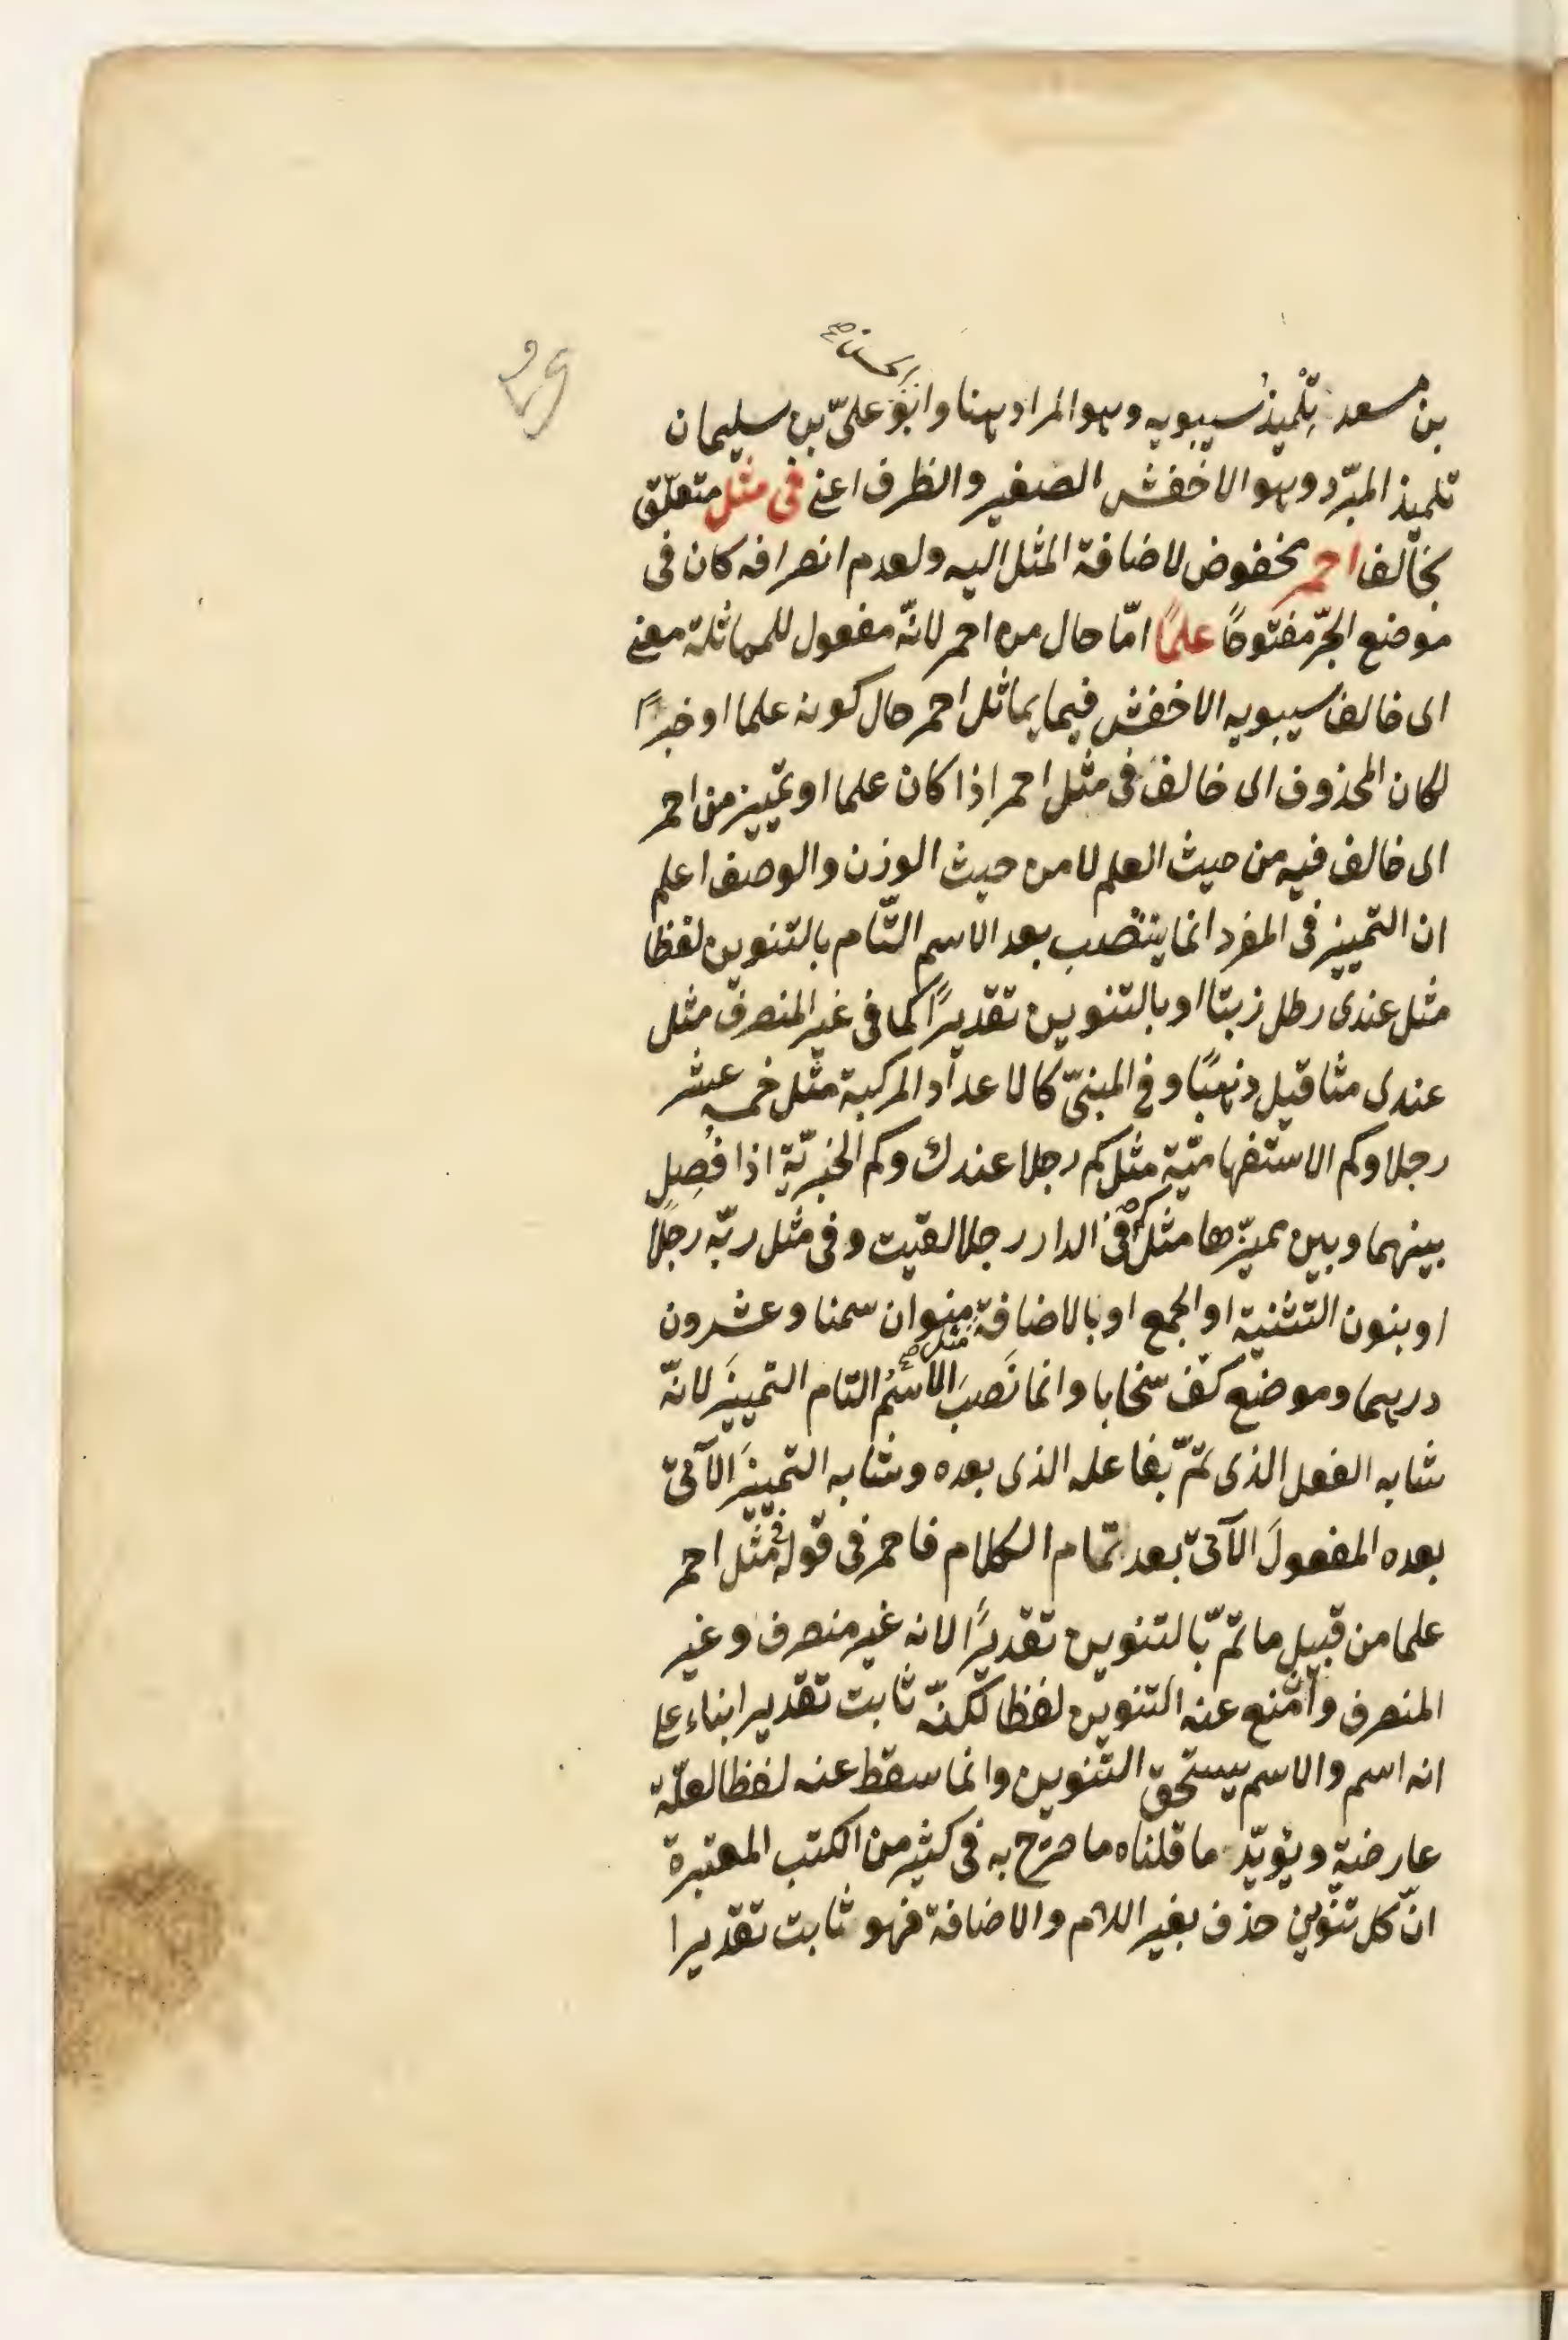 الحسن صح
بن مسعد تِلْميذُ سيبويه وهو المراد ههنا وابو علىّ بن سليمان
تلميذ المبرّد وهو الاخفش الصغير والظرف اعنى فى مثل متعلّق
بخالف احمر مخفوض لاضافة المثل اليه ولعدم انصرافه كان فى
موضع الجرّ مفتوحًا علمًا امّا حال من احمر لانّه مفعول للمماثلة معنى
اى خالف سيبويه الاخفش فيما يماثل احمر حال كونه علما او خبرًا
لكان المحذوف اى خالف فى مثل احمر اذا كان علما او تمييز من احمر
اى خالف فيه من حيث العلم لا من حيث الوزن والوصف اعلم
ان التمييز فى المفرد انما ينتصب بعد الاسم التّام بالتنوين لفظا
مثل عندى رطل زيتا او بالتنوين تقديرًا كما فى غير المنصرف مثل
عندى مثاقيل ذهبًا وفى المبنىّ كالاعداد المركبة مثل خمسة عشر
رجلا وكم الاستفهاميّة مثل كم رجلا عندك وكم الخبريّة اذا فُصِل
بينهما وبين مميّزها مثل كم فى الدار رجلا لقيت وفى مثل ربّه رجلًا
او بنون التثنية او الجمع او بالاضافة مثل صح منوان سمنا وعشرون
درهما وموضع كفّ سحابا وانما نَصبَ الاسمُ التام التمييزَ لانّه
شابه الفعل الذى تمّ بفاعله الذى بعده وشابه التمييزَ الآتىَ
بعده المفعولَ الآتىَ بعد تمام الكلام فاحمر فى قوله فى مثل احمر
علما من قبيل ما تمّ بالتنوين تقديرًا لانه غير منصرف وغير
المنصرف وامّنع عنه التنوين لفظا لكنّه ثابت تقديرا بناء على
انه اسم والاسم يستحق التنوين وانما سقط عنه لفظا لعلّة
عارضية ويؤيّد ما قلناه ما صرّح به فى كثير من الكتب المعتبرة
انّ كل تنوين حذف بغير اللام والاضافة فهو ثابت تقديرا